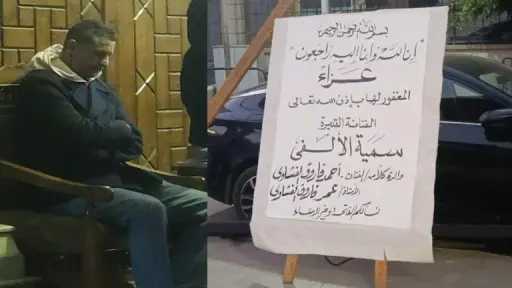 بسم الله الرحمن الرحيم
"إنا لله وإنا إليه راجعون"
عزاء
المغفور لها بإذن الله تعالى
الفنانة القديرة
سمية الألفي
والدة كلا من / الفنان. أحمد فاروق الفيشاوي
الأستاذ / عمر فاروق الفيشاوي
نسألكم الفاتحة